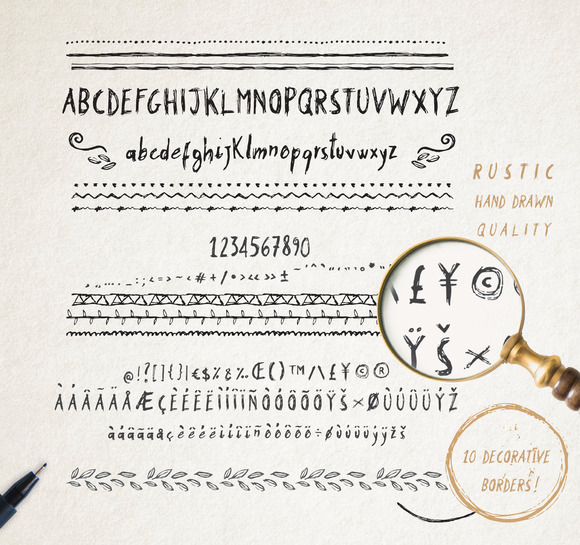 ABCDEFGHIJKLMNOPQRSTUVWXYZ
abcdefghijklmnopqrstuvwxyz
RUSTIC
HAND DRAWN
QUALITY
1234567890
£ ¥ ©
Ÿ Š ×
@!?[]{}|€$%&‰Œ()™/\£¥©®
ÀÁÂÃÄÅÆÇÈÉÊËÌÍÎÏÑÒÓÔÕÖŸŠ×ØÙÚÛÜÝŽ
àáâãäåçèéêëìíîïñòóôõö÷øùúûüýÿžš
10 DECORATIVE
BORDERS!